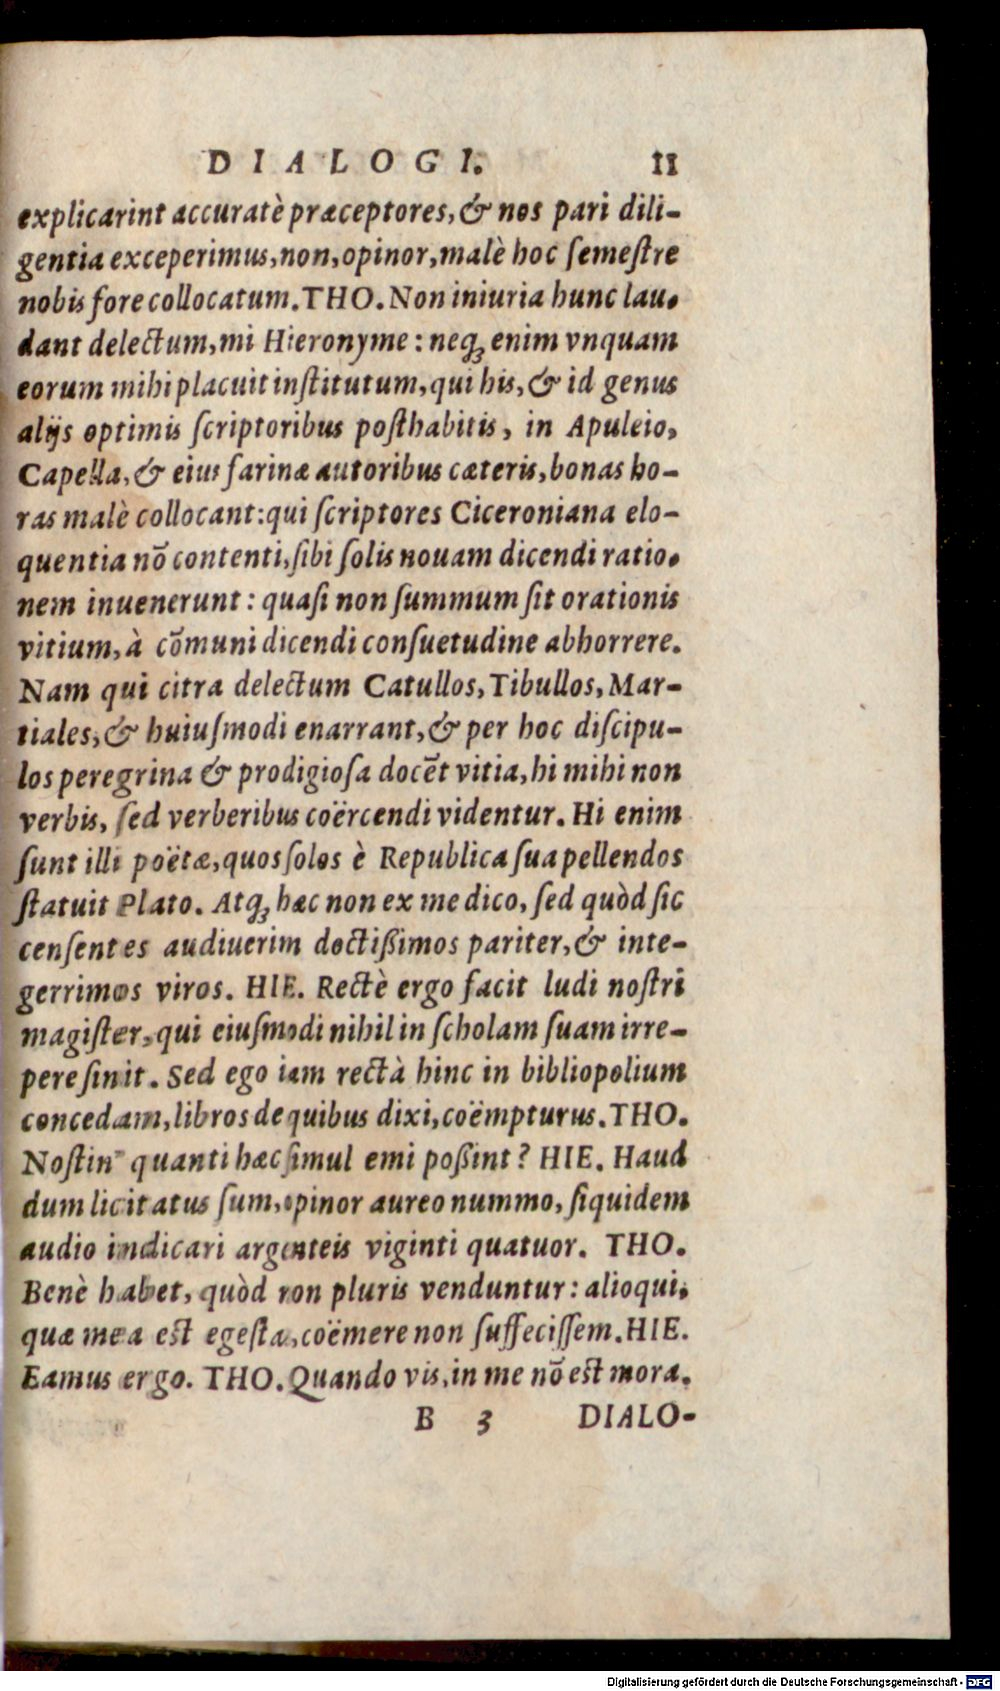 DIALOGI. 11
explicarint accuratè præceptores, & nos pari dili-
gentia exceperimus, non, opinor, malè hoc ſemeſtre
nobis fore collocatum. THO. Non iniuria hunc lau-
dant delectum, mi Hieronyme: neqꝫ enim vnquam
eorum mihi placuit inſtitutum, qui his, & id genus
alijs optimis ſcriptoribus poſthabitis, in Apuleio,
Capella, & eius farinæ autoribus cæteris, bonas ho-
ras malè collocant: qui ſcriptores Ciceroniana elo-
quentia nō contenti, ſibi ſolis nouam dicendi ratio-
nem inuenerunt: quaſi non ſummum ſit orationis
vitium, à cōmuni dicendi conſuetudine abhorrere.
Nam qui citra delectum Catullos, Tibullos, Mar-
tiales, & huiuſmodi enarrant, & per hoc diſcipu-
los peregrina & prodigioſa docēt vitia, hi mihi non
verbis, ſed verberibus coërcendi videntur. Hi enim
ſunt illi poëtæ, quos ſolos è Republica ſua pellendos
ſtatuit Plato. Atqꝫ hæc non ex me dico, ſed quòd ſic
cenſentes audiuerim doctißimos pariter, & inte-
gerrimos viros. HIE. Rectè ergo facit ludi noſtri
magiſter, qui eiuſmodi nihil in ſcholam ſuam irre-
pere ſinit. Sed ego iam rectà hinc in bibliopolium
concedam, libros de quibus dixi, coëmpturus. THO.
Noſtin' quanti hæc ſimul emi poßint? HIE. Haud
dum licitatus ſum, opinor aureo nummo, ſiquidem
audio indicari argenteis viginti quatuor. THO.
Benè habet, quòd non pluris venduntur: alioqui,
quæ mea eſt egeſtas, coëmere non ſuffeciſſem. HIE.
Eamus ergo. THO. Quando vis, in me nō eſt mora.
B 3 DIALO-
Digitalisierung gefördert durch die Deutsche Forschungsgemeinschaft - DFG